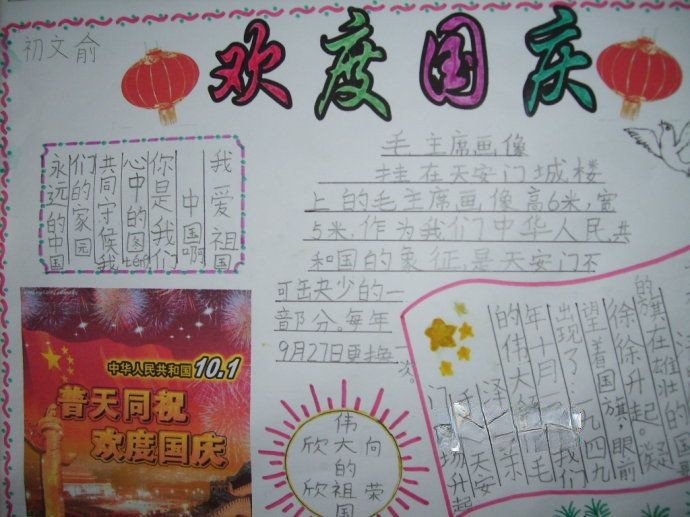 初文俞
欢度国庆
我爱祖国
中国啊
你是我们
心中的图téng
共同守候我
们的家园
永远的中国
毛主席画像
挂在天安门城楼
上的毛主席画像高6米,宽
5米,作为我们中华人民共
和国的象征,是天安门不
可缺少的一
部分。每年
9月27日更换一次。
中华人民共和国10.1
普天同祝
欢度国庆
向荣
伟大的祖国
欣欣
的旗在雄壮的国
徐徐升起。凝
望着国旗,眼前
出现了:一九四九
年十月 我们
的伟大 毛
泽
天安
门 场升起